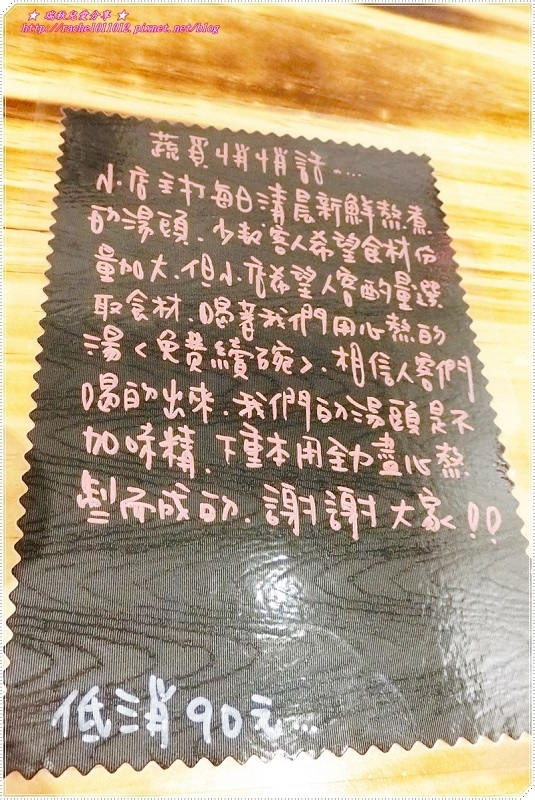 ★ 瑞秋兒愛分享 ★
http://rachel011012.pixnet.net/blog
蔬負悄悄話....
小店主打每日清晨新鮮熬煮
的湯頭.少數客人希望食材份
量加大.但小店希望人客酌量選
取食材.喝著我們用心熬的
湯<免費續碗>.相信人客們
喝的出來.我們的湯頭是不
加味精.下重本用全力盡心熬
製而成的.謝謝大家!!
低消90元...